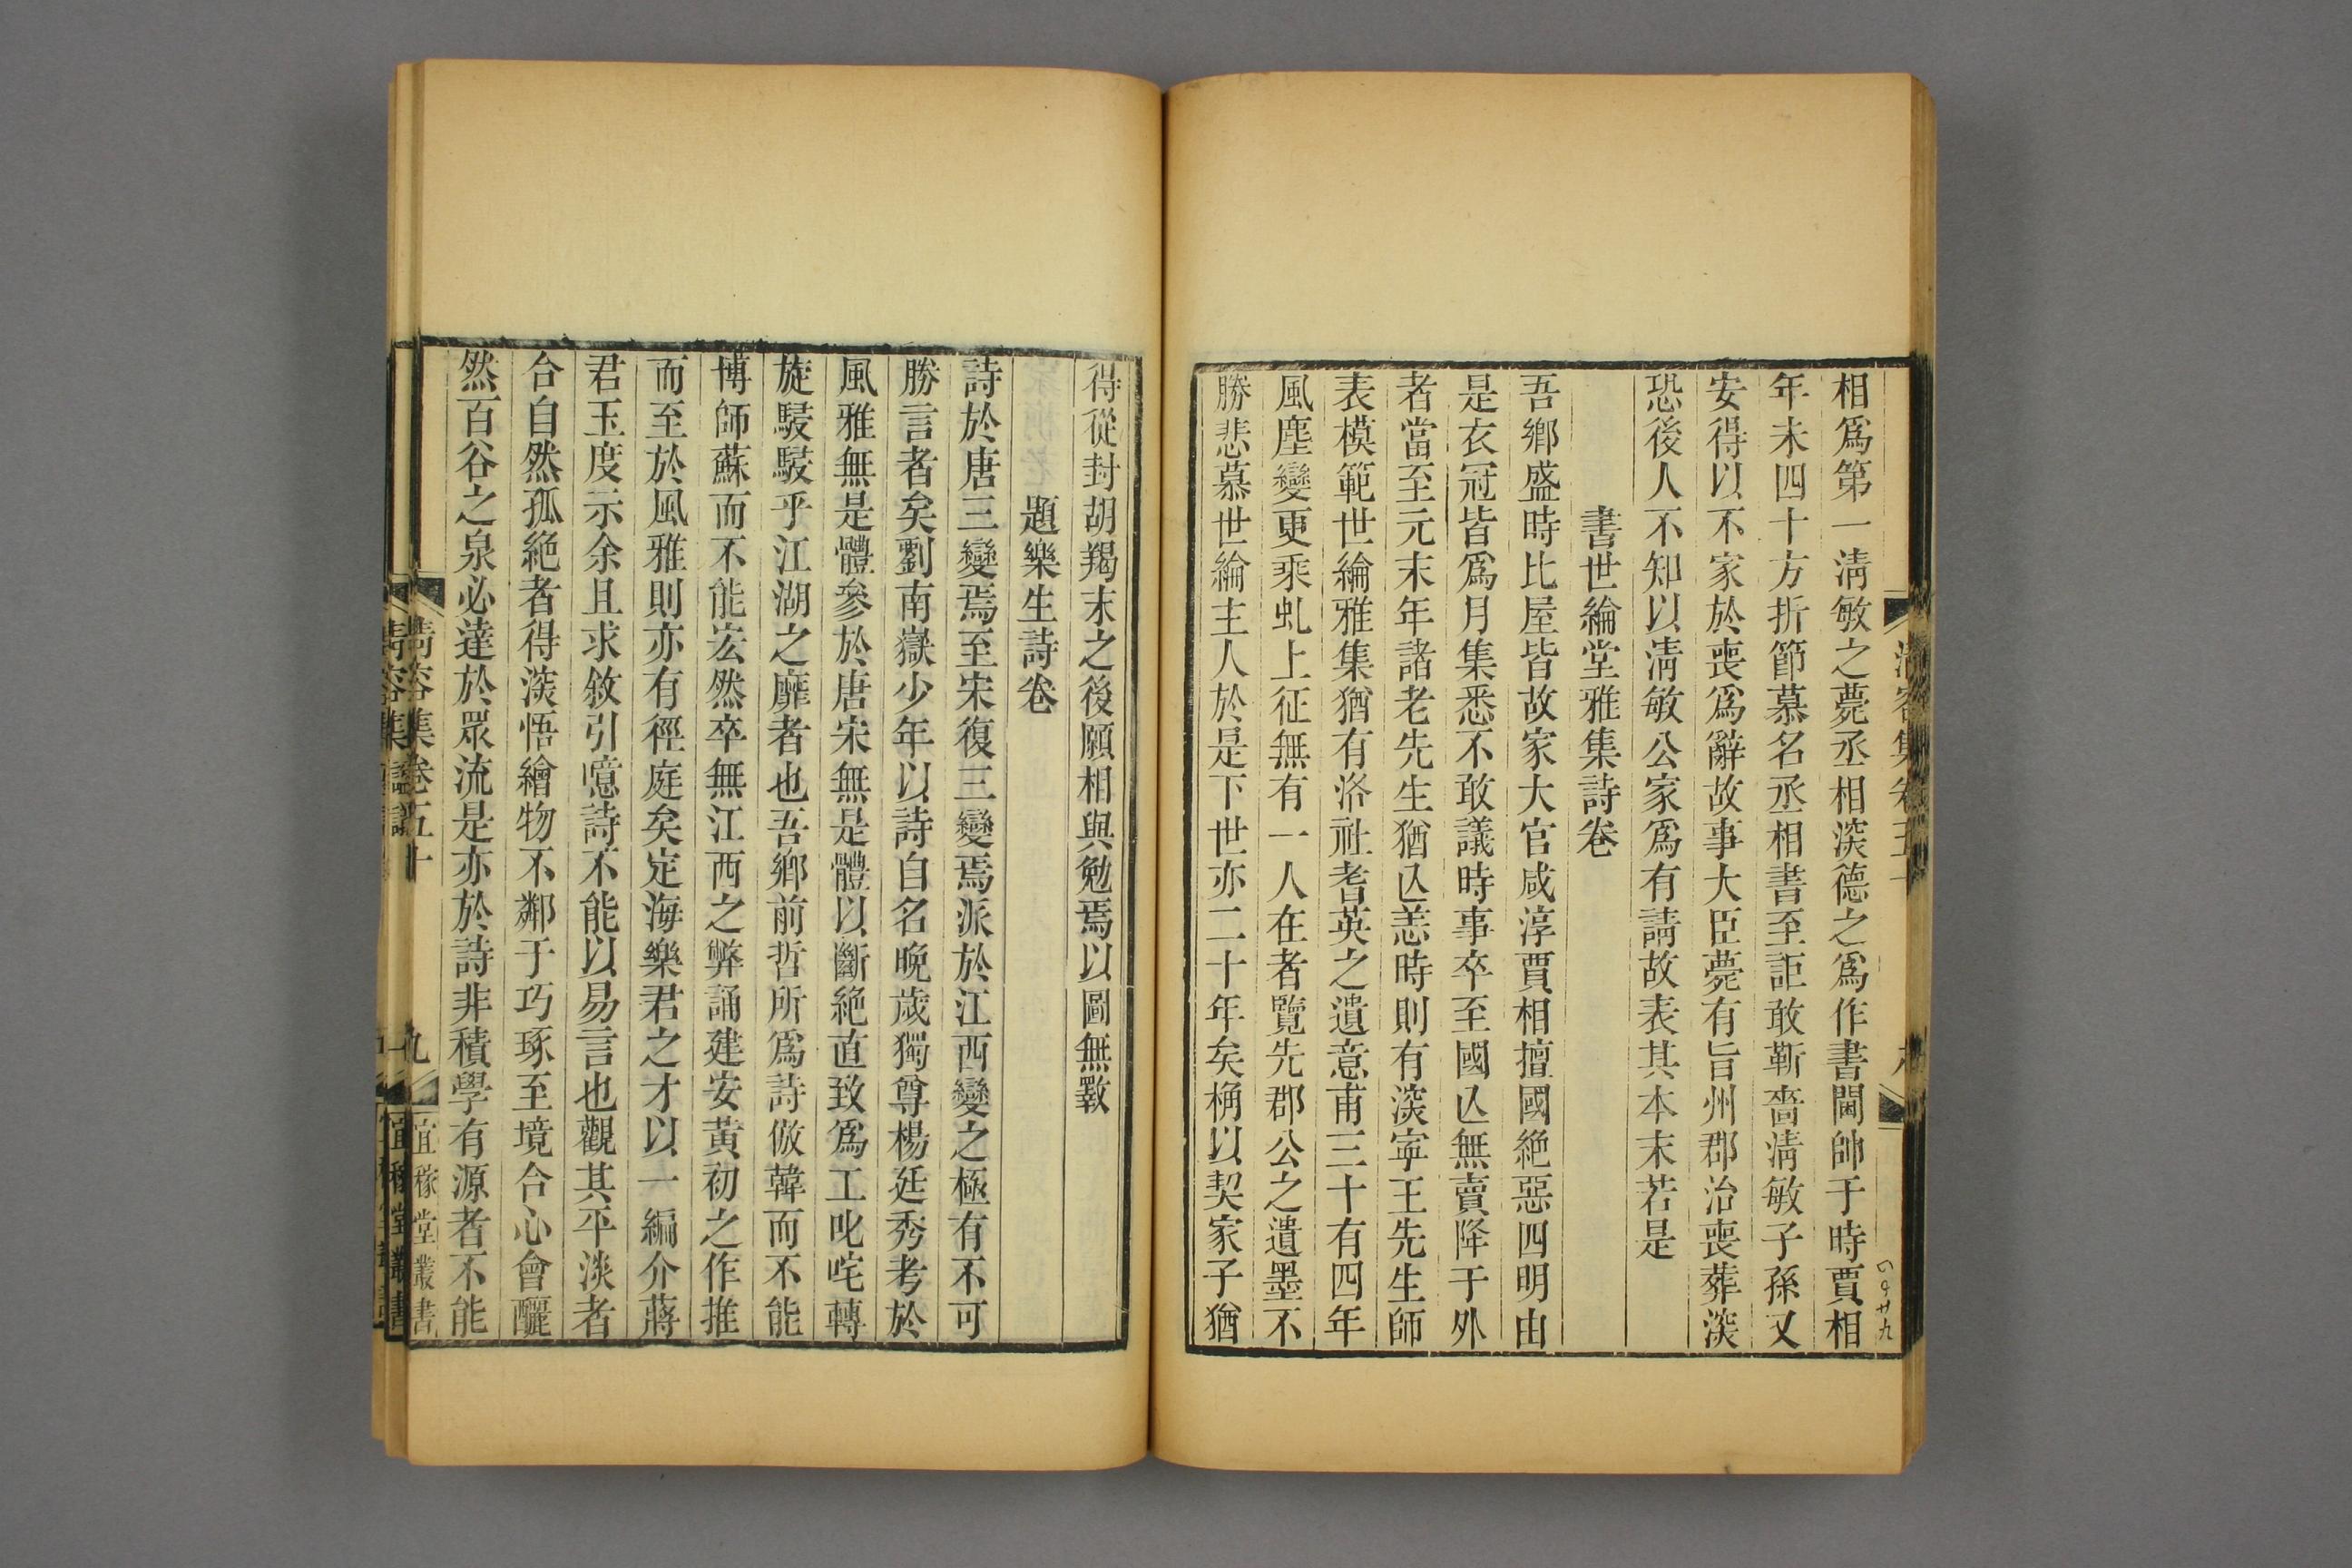 相爲第一淸敏之薨丞相深德之爲作書閫帥于時賈相
年未四十方折節慕名丞相書至詎敢靳嗇淸敏子孫又
安得以不家於喪爲辭故事大臣薨有旨州郡治喪葬深
恐後人不知以淸敏公家爲有請故表其本末若是
書世綸堂雅集詩卷
吾鄉盛時比屋皆故家大官咸淳賈相擅國絶惡四明由
是衣冠皆爲月集悉不敢議時事卒至國亾無賣降于外
者當至元末年諸老先生猶亾恙時則有深寧王先生師
表模範世綸雅集猶有洛社耆英之遺意甫三十有四年
風塵變更乘虬上征無有一人在者覽先郡公之遺墨不
勝悲慕世綸主人於是下世亦二十年矣桷以契家子猶
得從封胡羯末之後願相與勉焉以圖無斁
題樂生詩卷
詩於唐三變焉至宋復三變焉派於江西變之極有不可
勝言者矣劉南嶽少年以詩自名晚歲獨尊楊廷秀考於
風雅無是體參於唐宋無是體以斷絶直致爲工叱咤轉
旋駸駸乎江湖之靡者也吾鄉前哲所爲詩倣韓而不能
博師蘇而不能宏然卒無江西之弊誦建安黃初之作推
而至於風雅則亦有徑庭矣定海樂君之才以一編介蔣
君玉度示余且求敘引噫詩不能以易言也觀其平淡者
合自然孤絶者得深悟繪物不鄰于巧琢至境合心會釃
然百谷之泉必達於眾流是亦於詩非積學有源者不能
淸容集卷五十
九
宜稼堂叢書